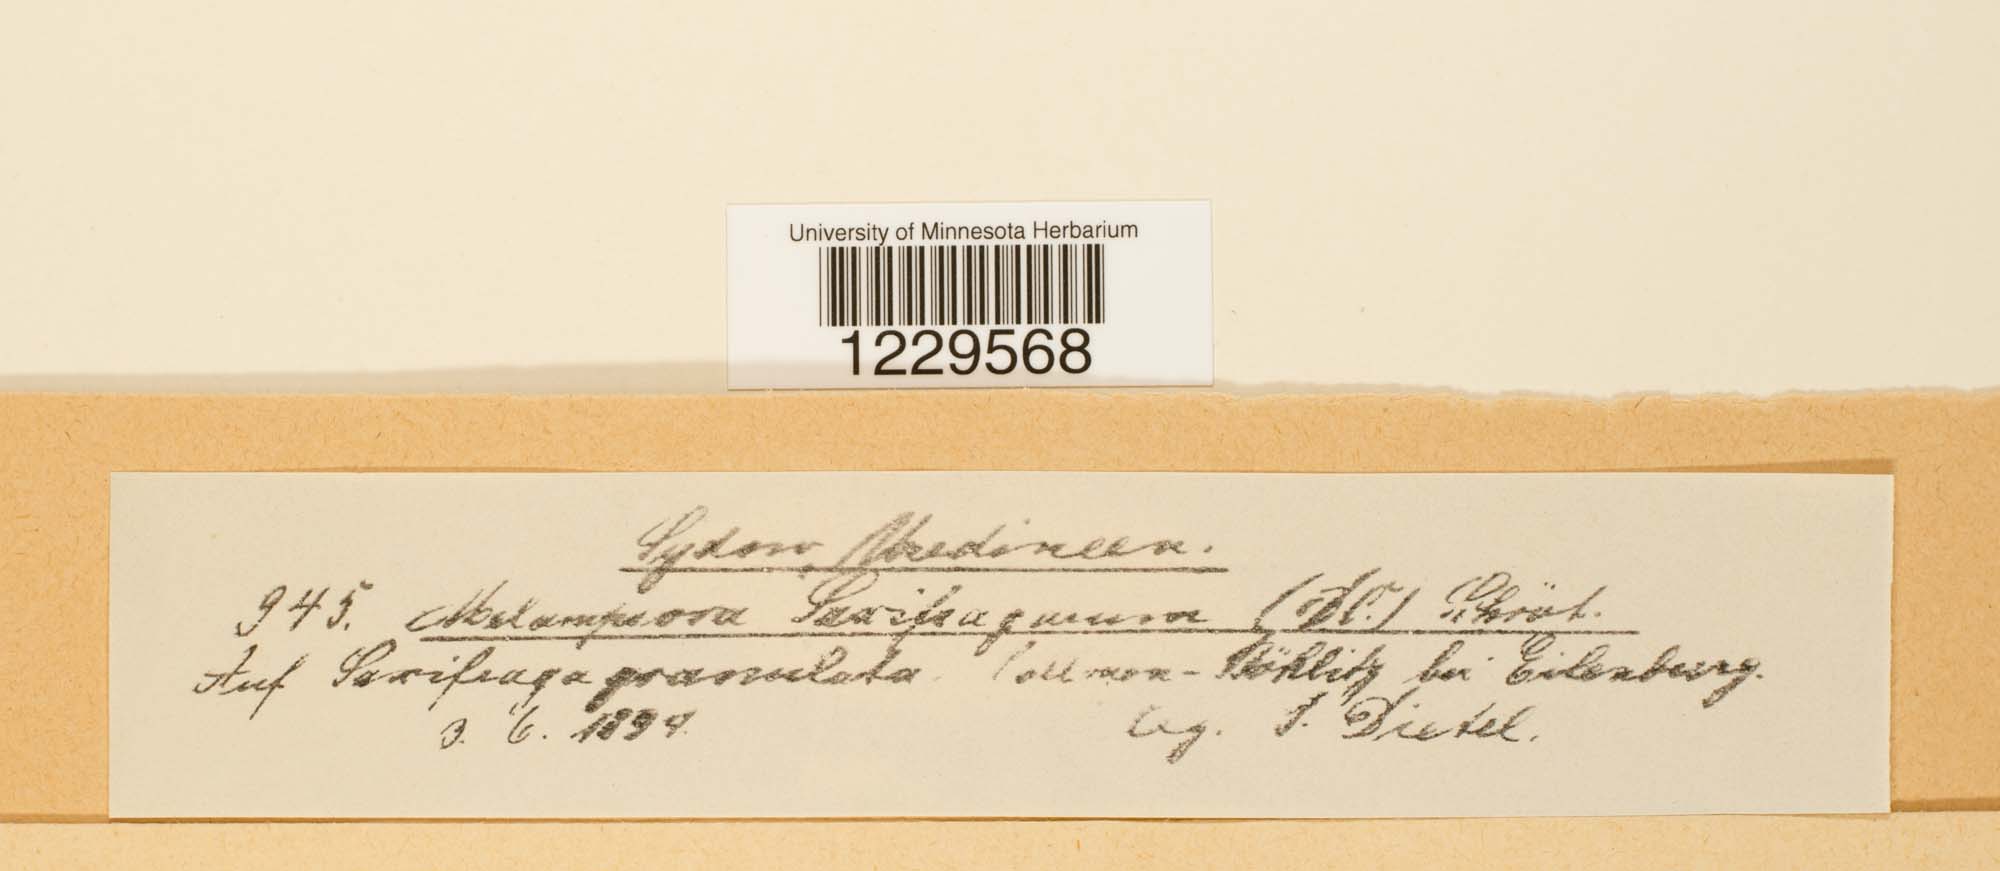 University of Minnesota Herbarium
1229568
Sydow, Uredineen.
945. Melampsora Saxifragarum (DC.) Schröt.
Auf Saxifraga granulata. Kollmen-Böhlitz bei Eilenburg.
3. 6. 1894. leg. P. Dietel.